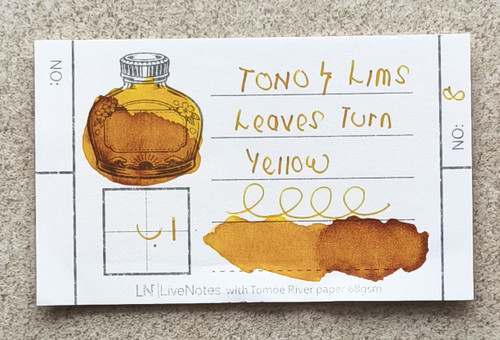 NO:
TONO & Lims
Leaves Turn
Yellow
ا ب
NO: 8
LN LiveNotes with Tomoe River paper 68gsm